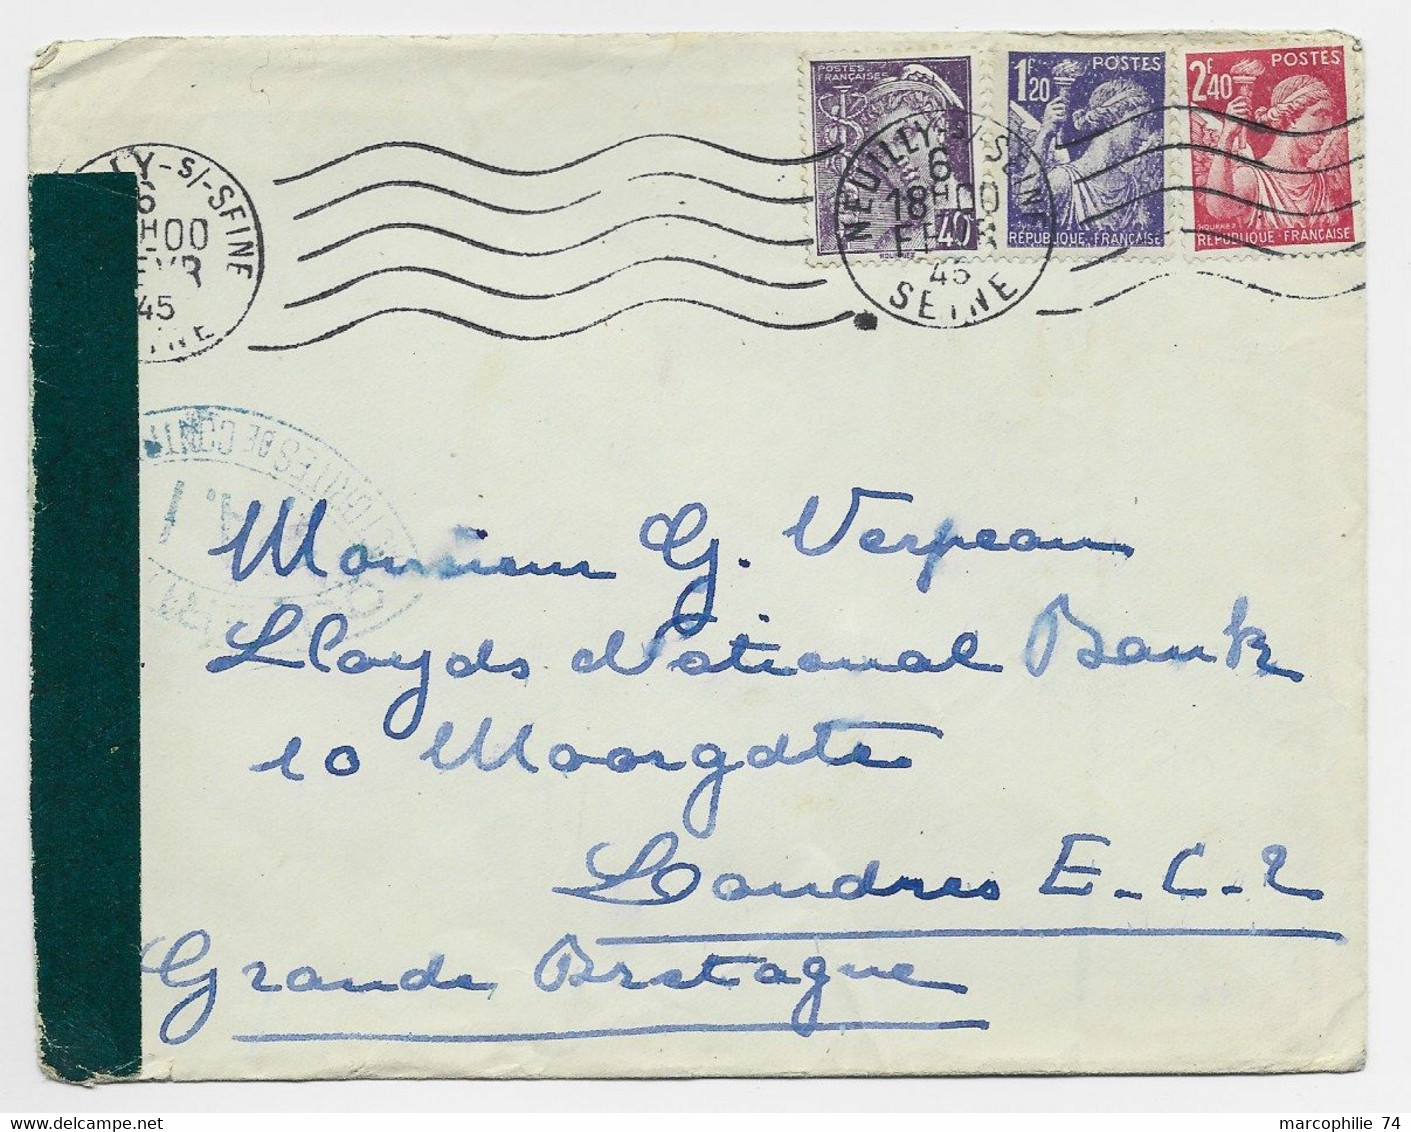 POSTES FRANÇAISES
40
1F20
POSTES
RÉPUBLIQUE FRANÇAISE
2F40
POSTES
RÉPUBLIQUE FRANÇAISE
NEUILLY-S/-SEINE
6
18H00
FEVR
45
SEINE
LY-S/-SEINE
6
H00
EVR
45
INE
A.
Monsieur G. Verpeau
Lloyds National Bank
10 Moorgate
Londres E-C-2
Grande Bretagne
marcophilie 74
www.delcampe.net